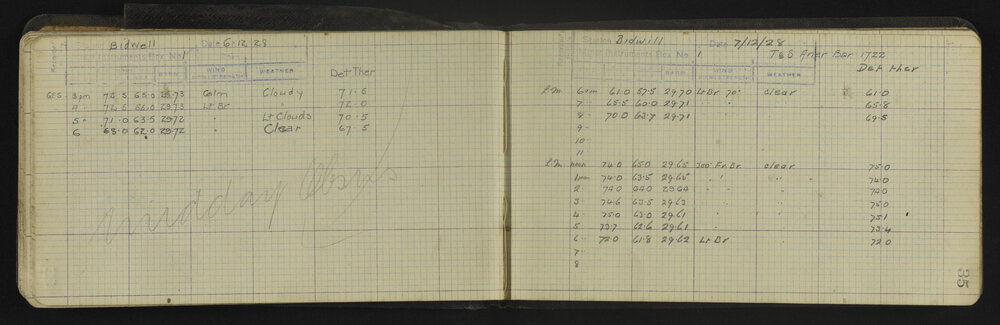 Bidwell Date 6/12/28
Instruments Box No 1
WIND WEATHER Det Ther
GES 3pm 75.5 65.0 29.73 Calm Cloudy 71.5
4 " 72.5 66.0 29.73 Lt Br " 72.0
5 " 71.0 63.5 29.72 " Lt Clouds 70.5
6 68.0 62.0 29.72 " Clear 67.5
midday Obsys
Station Bidwill Date 7/12/28
Instruments Box No 1 T&S Aner Bar 1722
BARR WIND WEATHER Det ther
6am 61.0 57.5 29.70 Lt Br 70° clear 61.0
7 " 65.5 60.0 29.71 " " 65.8
8 " 70.0 63.7 29.71 69.5
9
10
11
noon 74.0 65.0 29.65 300° Fr. Br. clear 75.0
1pm 74.0 63.5 29.65 " " " 74.0
2 74.0 64.0 29.64 " " " 74.0
3 74.6 63.5 29.63 " 75.0
4 75.0 63.0 29.61 " 75.1
5 73.7 62.6 29.61 " 73.4
6 72.0 61.8 29.62 Lt Br " 72.0
7
8
35